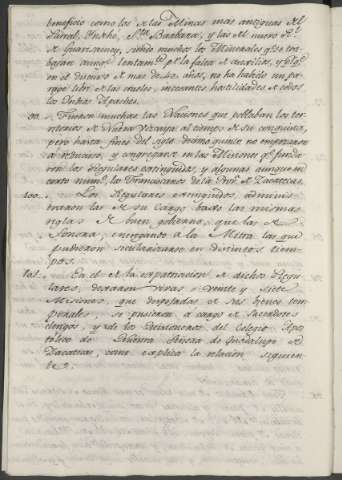 beneficio como las de las Minas mas antiguas del
Parral, Urique, Sta. Barbara, y las del nuevo Rl.
de Guarisamey, siendo muchos los Minerales qe. se tra-
bajan aunqe. lentamte. pr. la falta de auxilios, y pr. qe.
en el discurso de mas de 20. años, no ha habido un pa-
rage libre de las crueles, incesantes hostilidades de
los Indios Apaches.
99. Fueron muchas las Naciones que poblaban los ter-
ritorios de Nueva Vizcaya al tiempo de su conquista,
pero hasta fines del siglo decimo quinto no empezaron
à reducirse, y congregarse en las Misiones qe. funda-
ron los Regulares extinguidos, y algunas aunque in
corto numo. los Franciscanos de la Prova. de Zacatecas.
100. Los Regulares extinguidos, adminis-
traron las de su cargo bajo las mismas
reglas de buen gobierno, que las de
Sonora, entregando à la Mitra las que
pudieron secularizarse en distintos tiem-
pos.
101. En el de la expatriacion de dichos Regu-
lares, dejaron vivas veinte y siete
Misiones, que despojadas de sus bienes tem-
porales, se pusieron à cargo de Sacerdotes
clerigos, y de los Religiosos del Colegio Apos-
tolico de Nuestra Señora de Guadalupe de
Zacatecas, como explica la relacion siguien-
te.